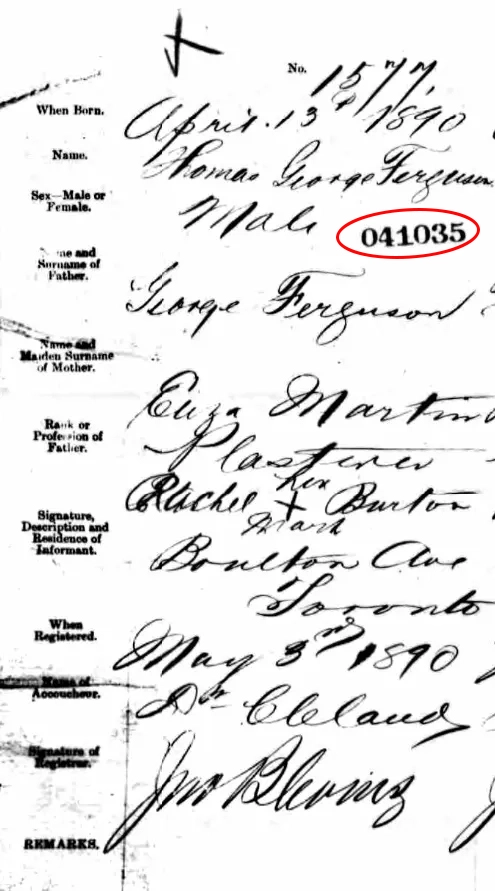 No.
When Born.
April. 13th 1890
Name.
Thomas George Ferguson
Sex—Male or
Female.
Male 041035
Name and
Surname of
Father.
George Ferguson
Name and
Maiden Surname
of Mother.
Eliza
Rank or
Profession of
Father.
Plasterer
Rachel her Burton
X
Mark
Signature,
Description and
Residence of
Informant.
Boulton Ave
Toronto
When
Registered.
May 3rd 1890
Name of
Accoucheur.
Dr Cleland
Signature of
Registrar.
Jno Blevins
REMARKS.